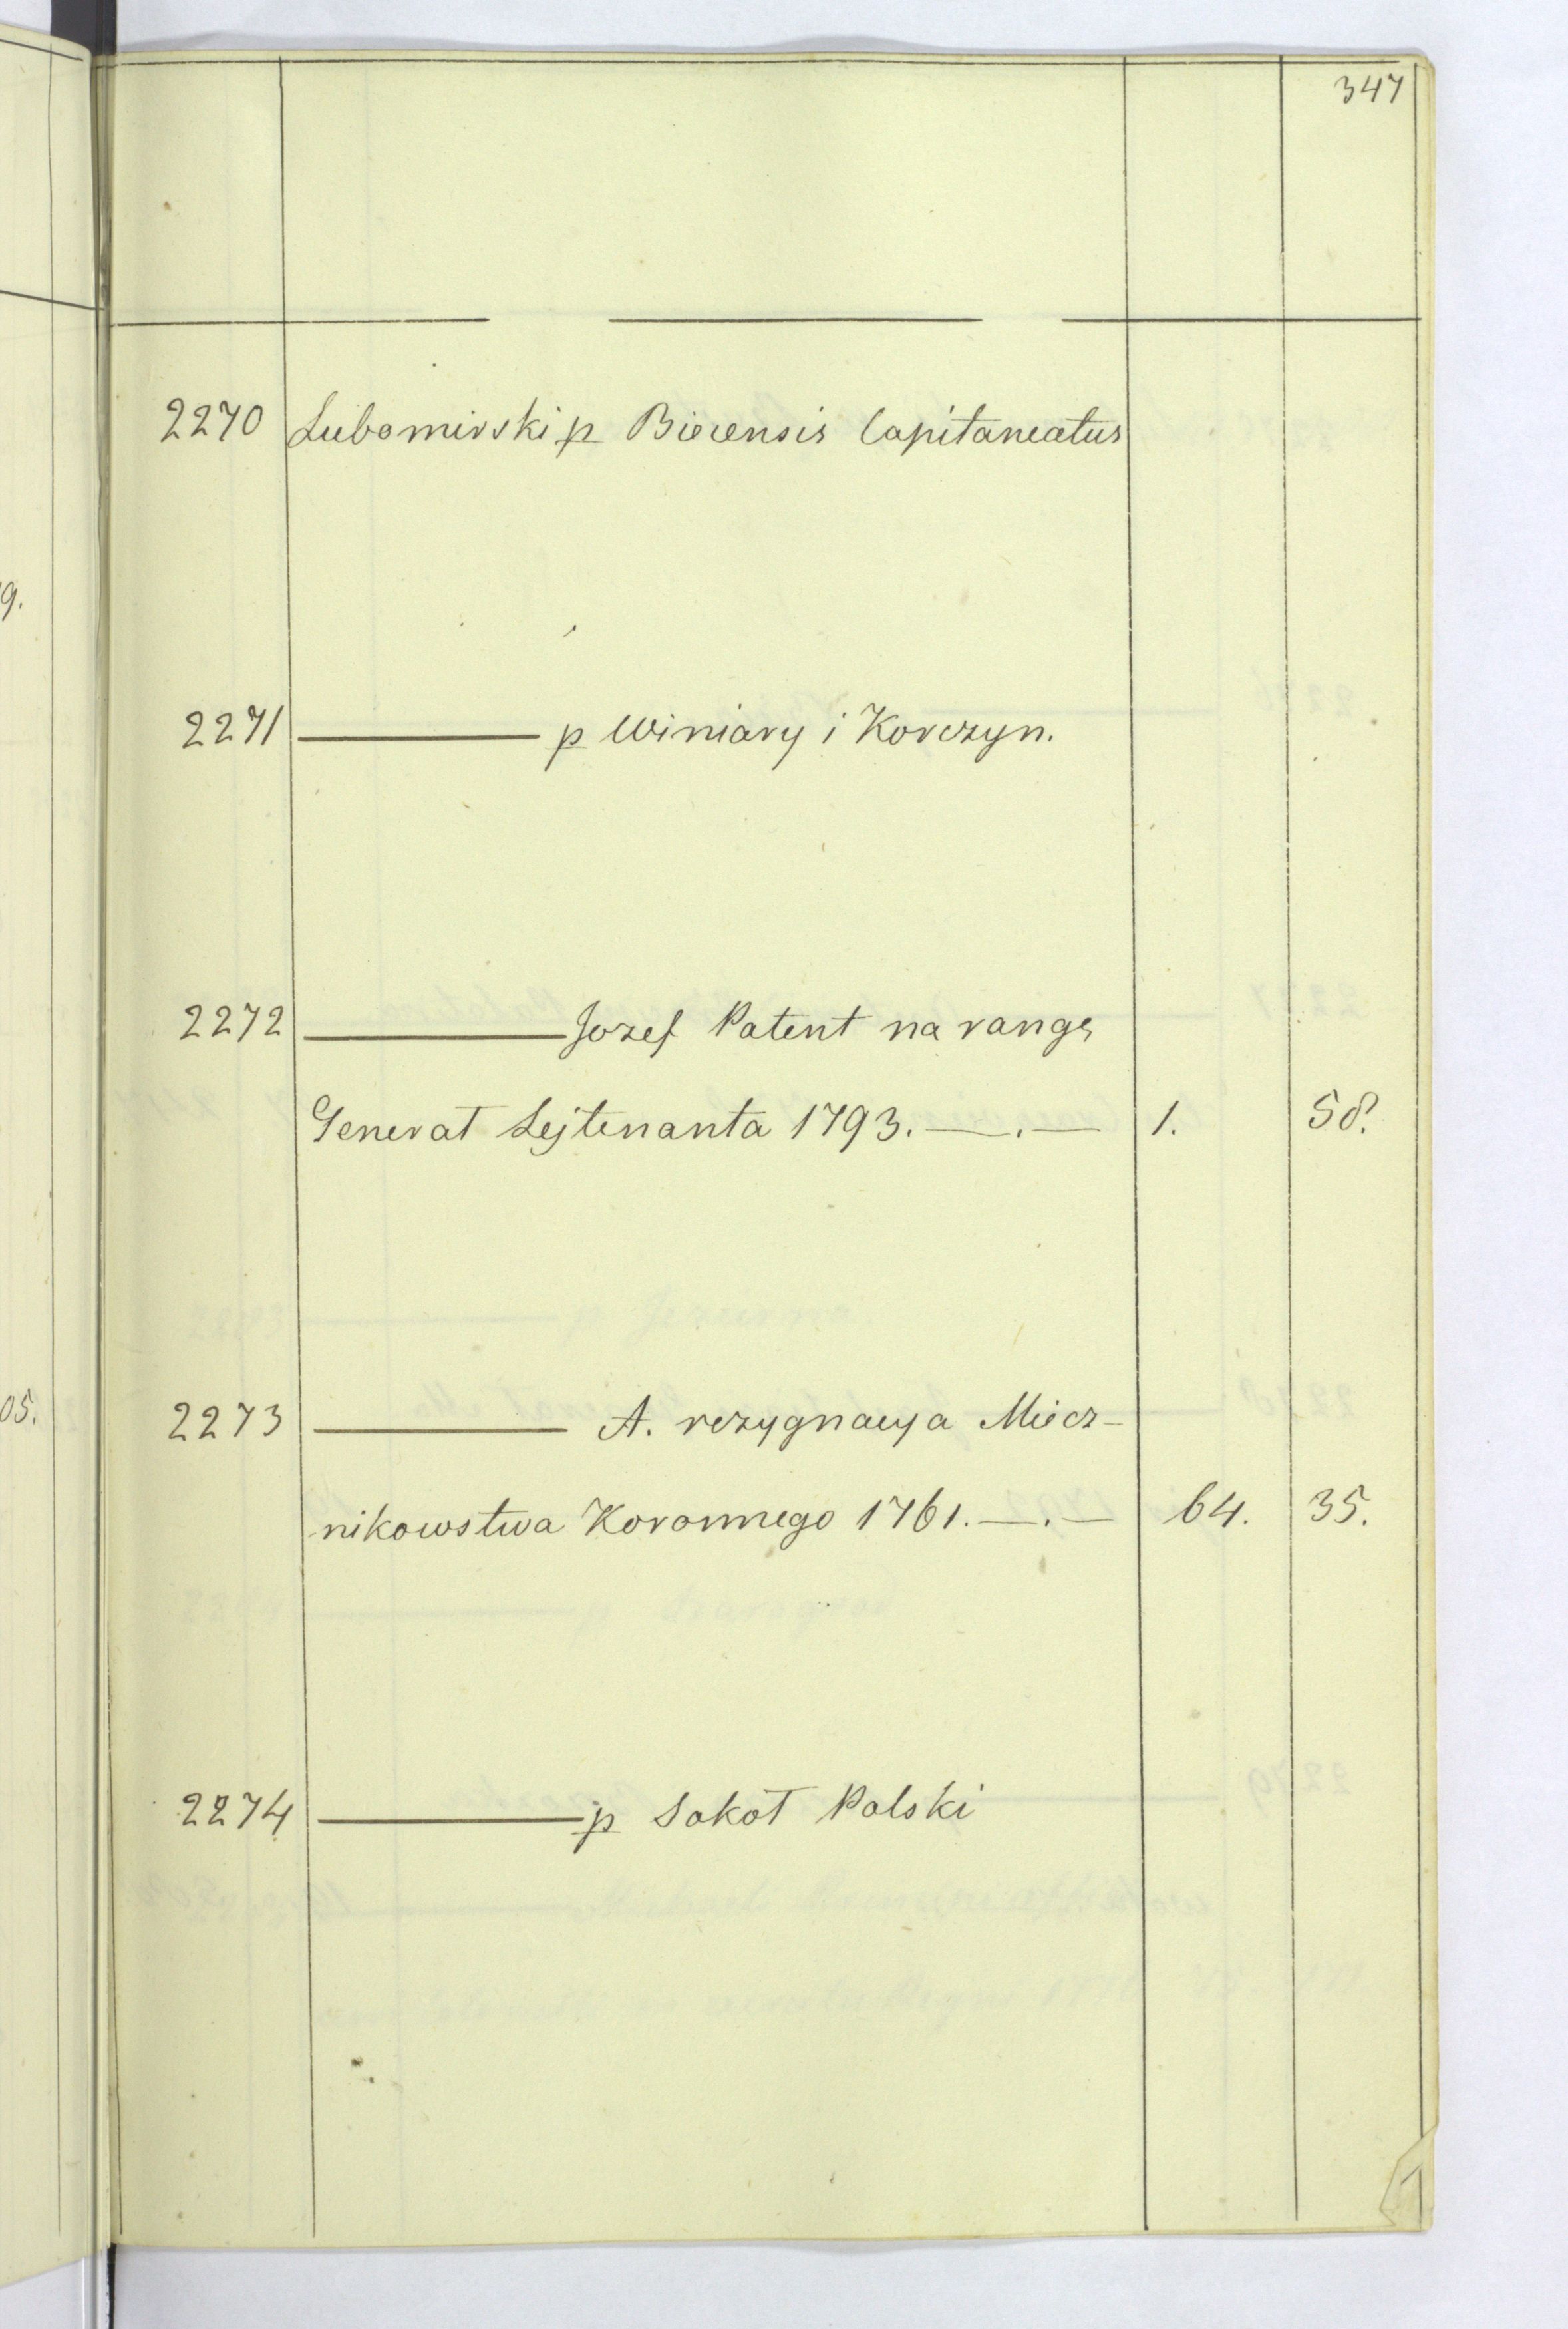 347
2270 Lubomirski p Biecensis Capitaneatus
2271 ——— p Winiary i Korczyn.
2272 ——— Jozef Patent na rangę
Generał Lejtenanta 1793. —.— 1. 58.
2273 ——— A. rezygnacya Miecz-
nikowstwa Koronnego 1761. —.— 64. 35.
2274 ——— p Sokoł Polski
9.
05.